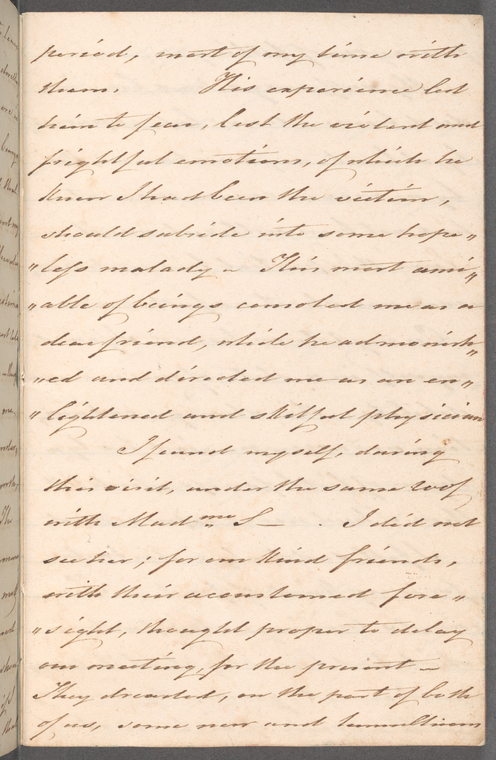 period, most of my time with
them. His experience led
him to fear, lest the violent and
frightful emotions, of which he
knew I had been the victim,
should subside into some hope„
„less malady – This most ami„
„able of beings consoled me as a
dear friend, while he admonish„
„ed and directed me as an en„
„lightened and skilful physician
I found myself, during
this visit, under the same roof
with Mad.me S— . I did not
see her; for our kind friends,
with their accustomed fore„
„sight, thought proper to delay
our meeting, for the present –
They dreaded, on the part of both
of us, some new and tumultuous